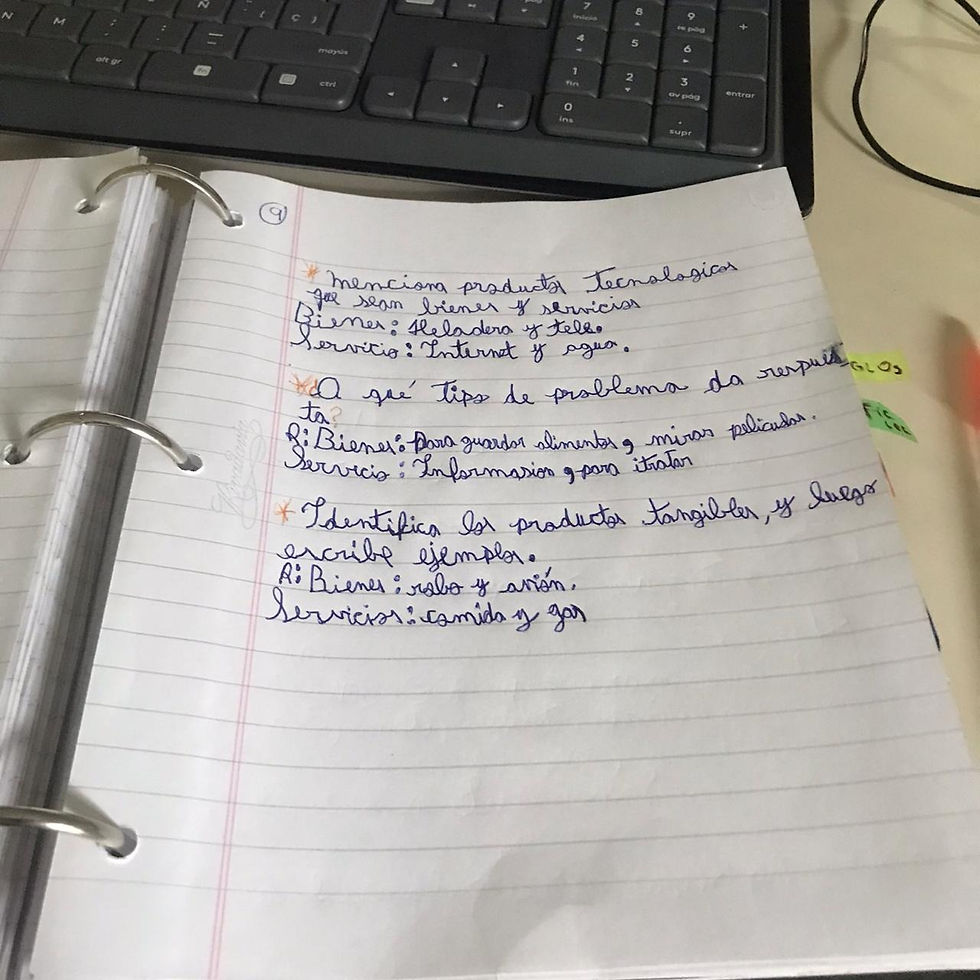 7
Inicio
8
9
re pág
+
4
5
6
1
fin
2
3
av pág
entrar
0
ins
.
supr
N
M
Ñ
Ç
alt gr
fn
mayús
ctrl
9
* Menciona productos tecnologicos
que sean bienes y servicios
Bienes: Heladera y tele.
Servicio: Internet y agua.
A qué tipo de problema da respues
ta?
R: Bienes: para guardar alimentos, mirar peliculas.
Servicio: Informasion, para
* Identifica los productos tangibles, y luego
escribe ejemplos.
R: Bienes: robo y avión.
Servicios: comida y gas
GLOS